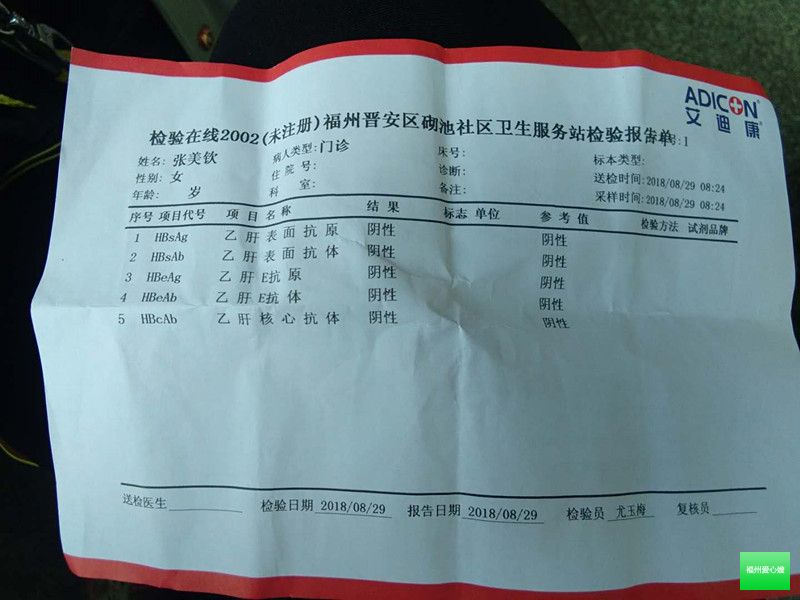 ADICON
艾迪康
检验在线2002(未注册)福州晋安区砌池社区卫生服务站检验报告单
:1
姓名: 张美钦 病人类型:门诊 床号: 标本类型:
性别: 女 住院号: 诊断: 送检时间:2018/08/29 08:24
年龄: 岁 科室: 备注: 采样时间:2018/08/29 08:24
序号 项目代号 项目名称 结果 标志 单位 参考值 检验方法 试剂品牌
1 HBsAg 乙肝表面抗原 阴性 阴性
2 HBsAb 乙肝表面抗体 阴性 阴性
3 HBeAg 乙肝E抗原 阴性 阴性
4 HBeAb 乙肝E抗体 阴性 阴性
5 HBcAb 乙肝核心抗体 阴性 阴性
送检医生 检验日期 2018/08/29 报告日期 2018/08/29 检验员 尤玉梅 复核员
福州爱心嫂